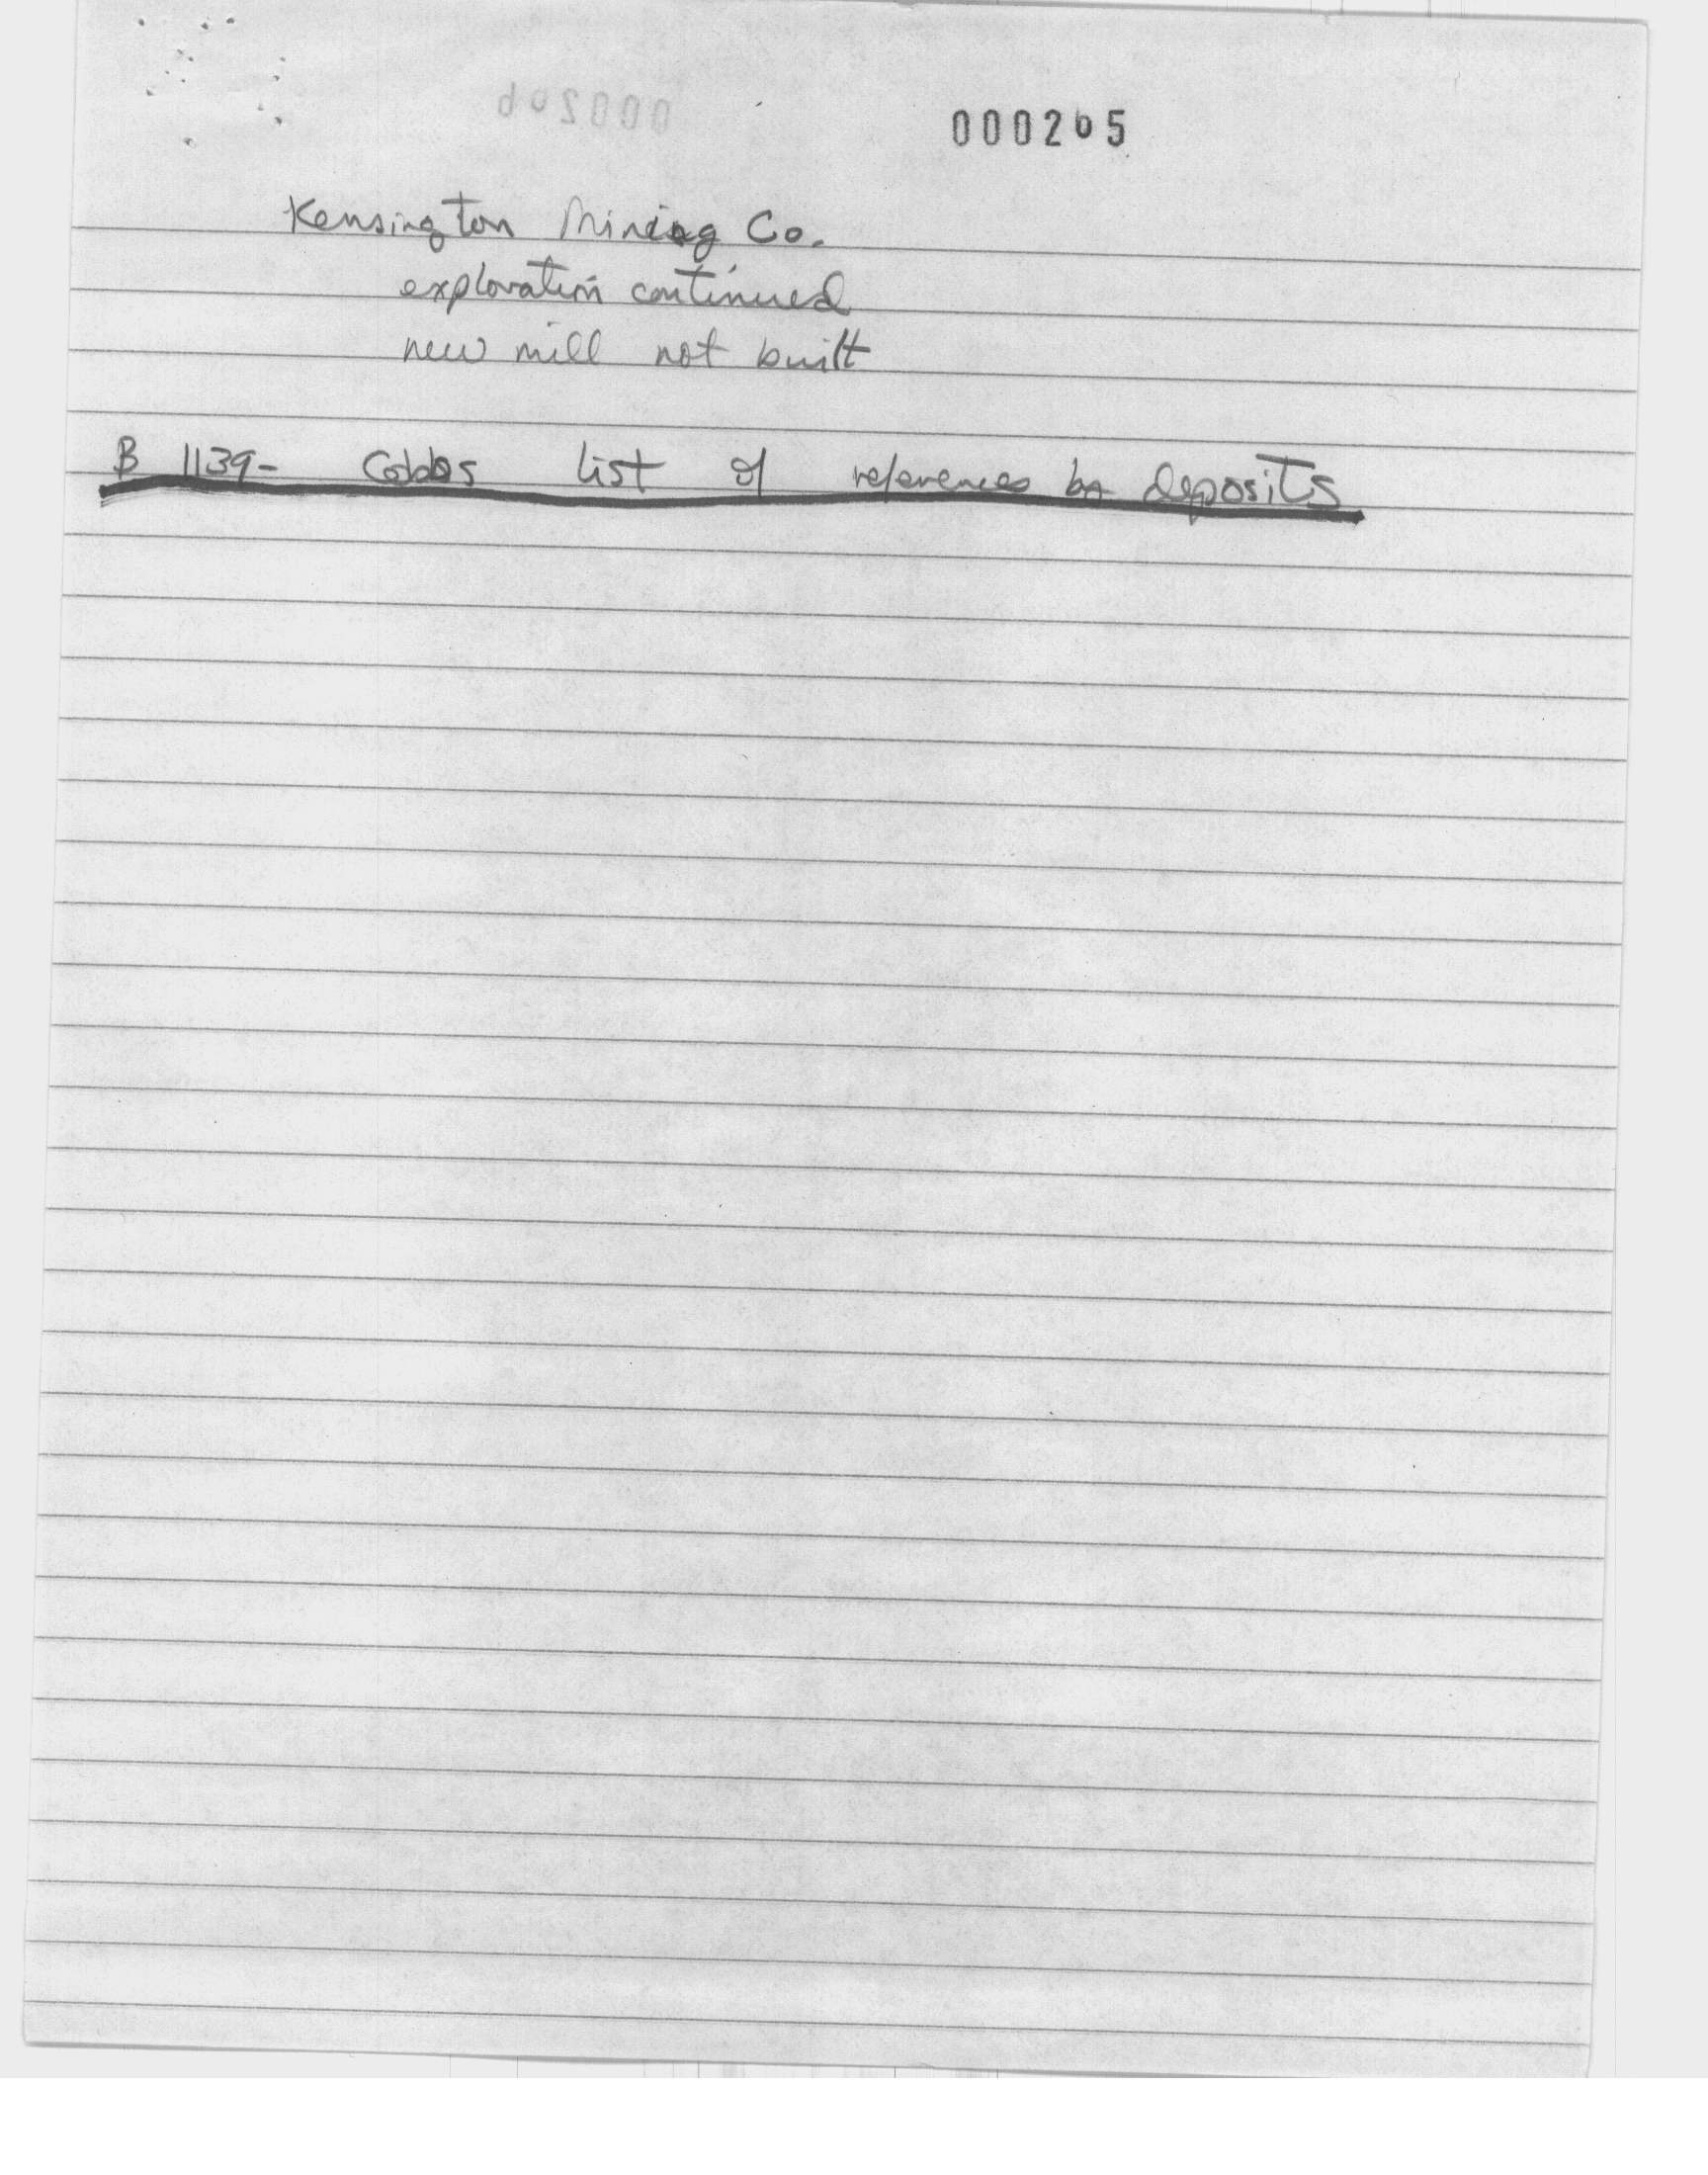 000205
Kensington Mining Co.
exploration continued
new mill not built
B 1139- Cobbs list of references by deposits